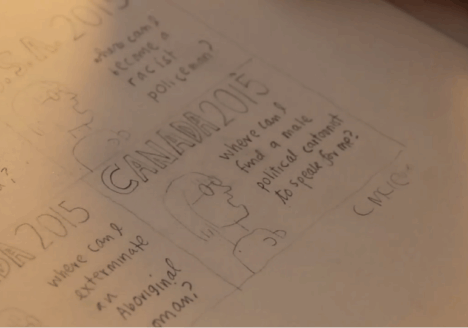 U.S.A 2015
where can I
become a
racist
policeman?
CANADA 2015
where can I
find a male
political cartoonist
to speak for me?
DA 2015
where can I
exterminate
an
Aboriginal